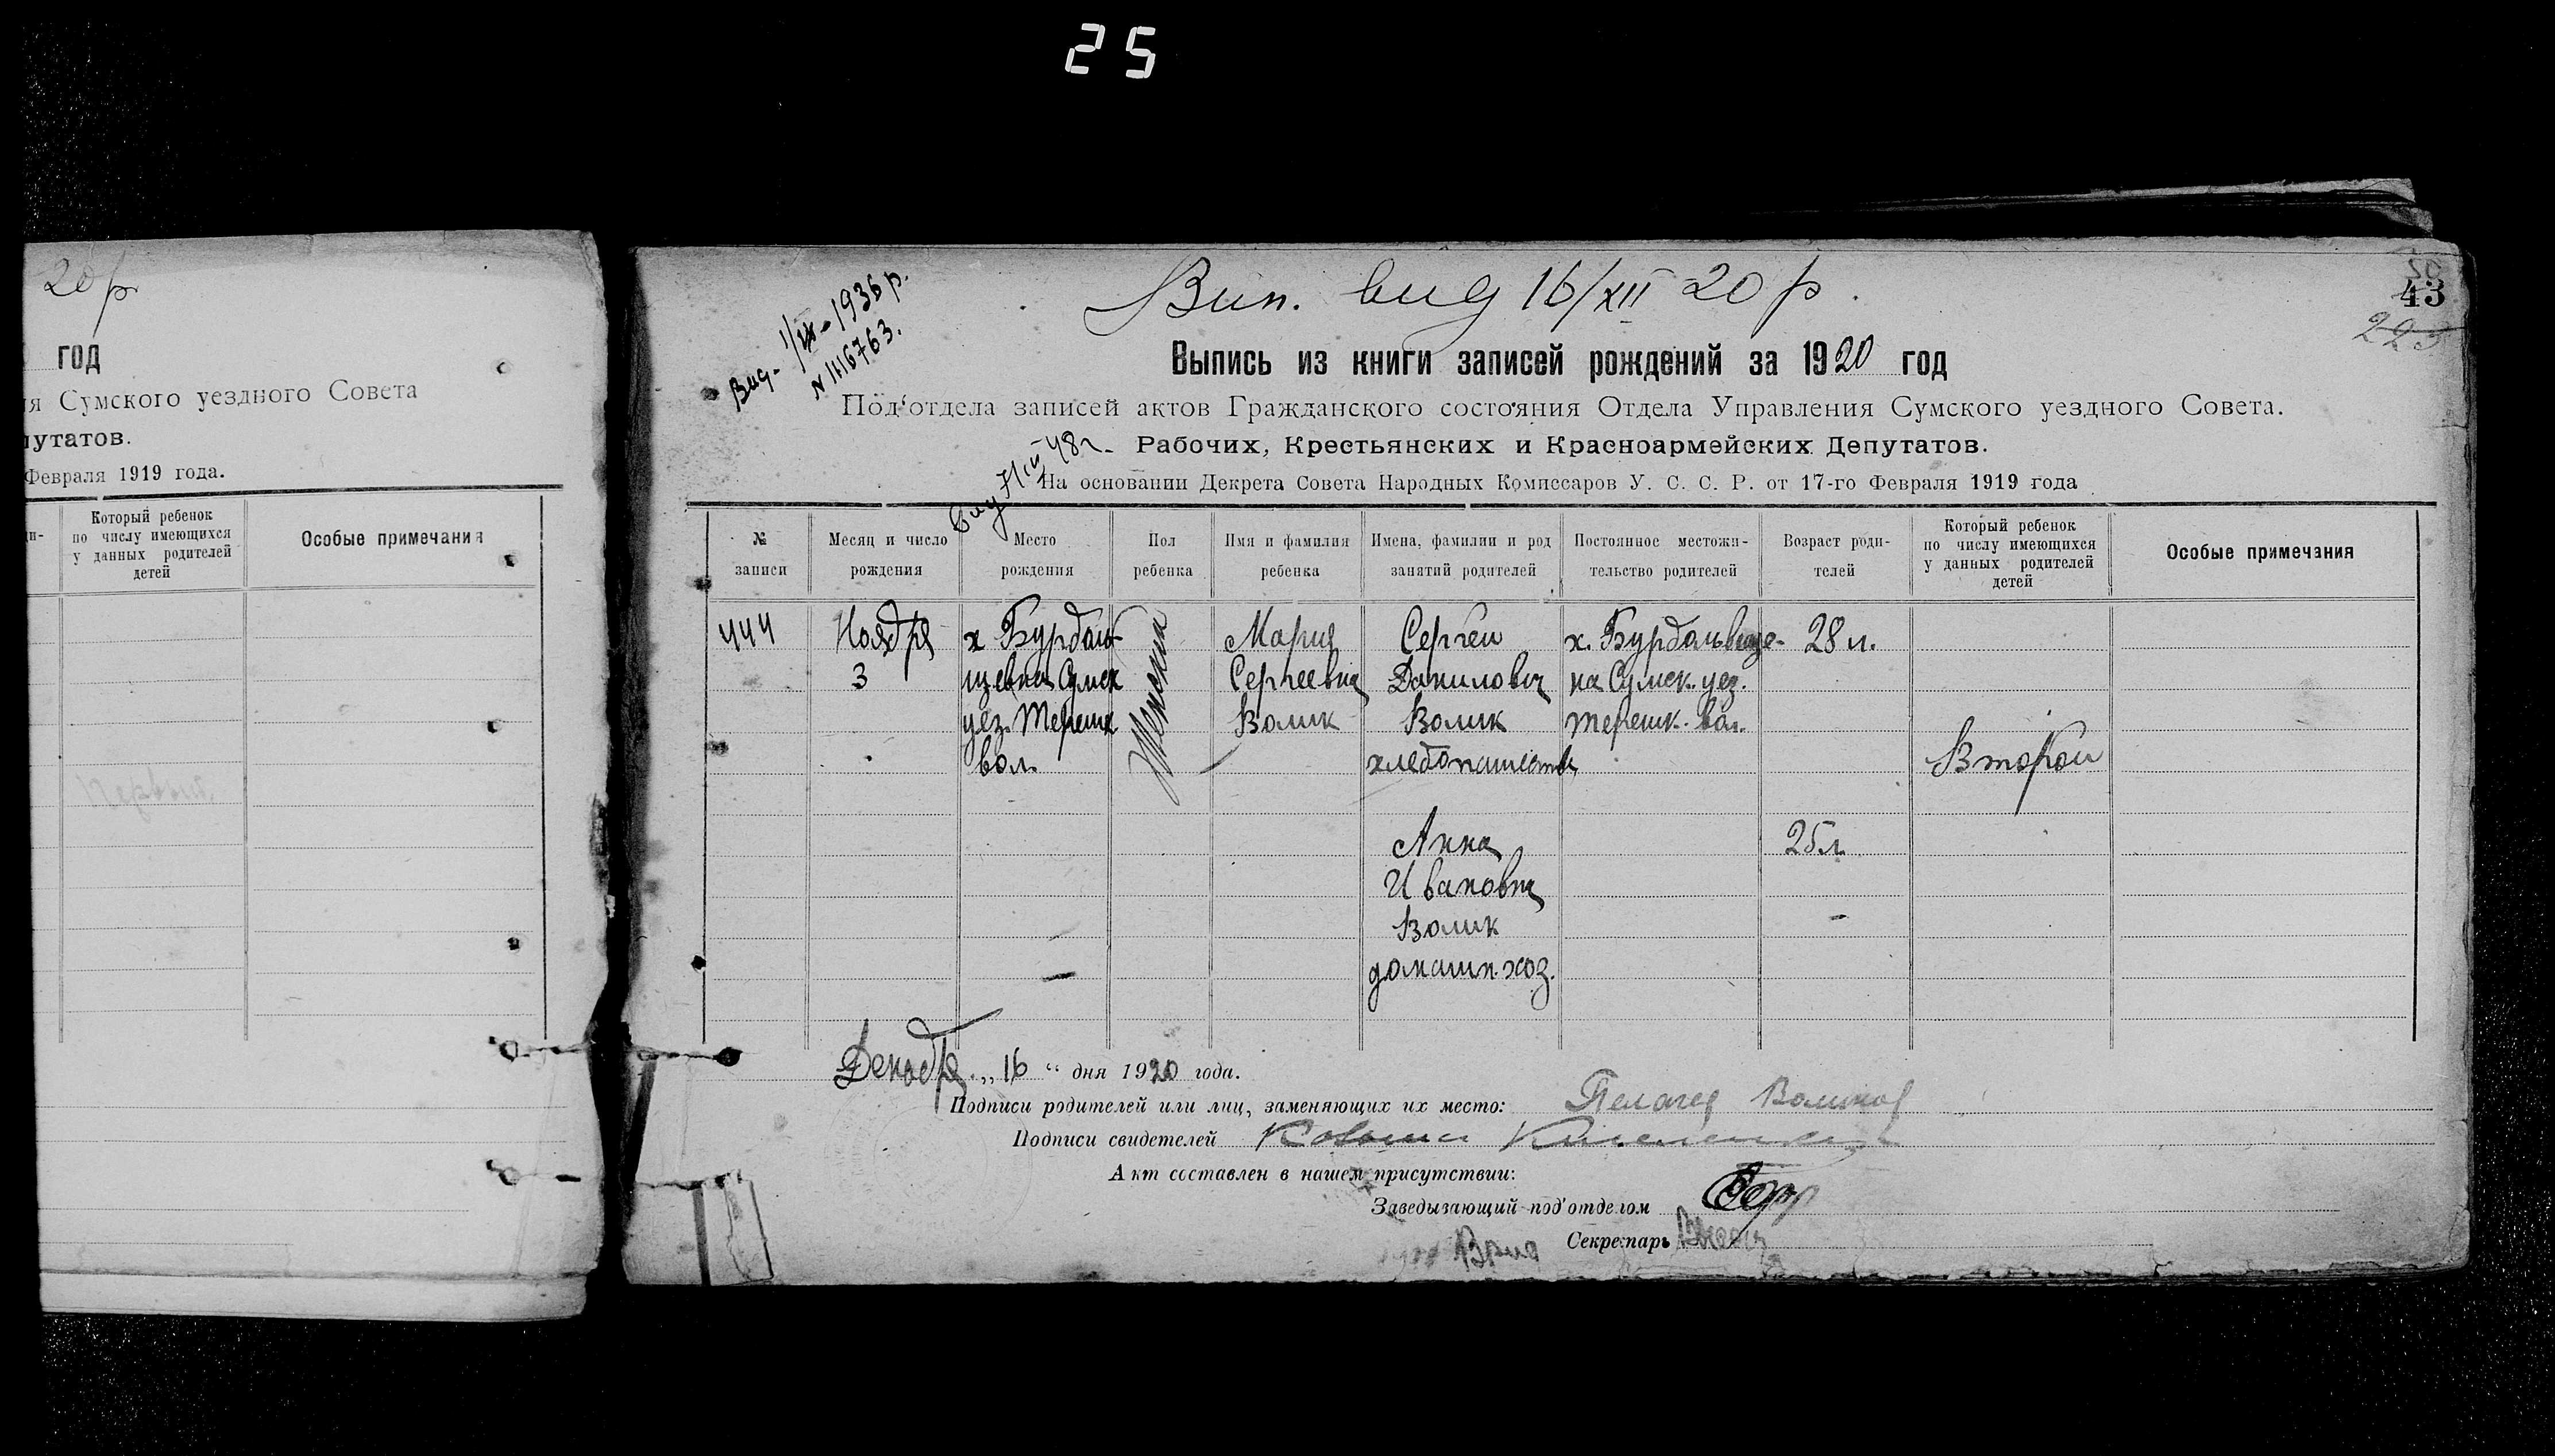 25
20 р
год
ия Сумского уездного Совета
путатов.
Февраля 1919 года.
Который ребенок
по числу имеющихся
у данных родителей
детей
Особые примечания
Первый
Вид. 1/IX-1936 р.
№ 1116763.
Вип. вид 16/XII 20 р.
50
43
223
Выпись из книги записей рождений за 1920 год
Под'отдела записей актов Гражданского состояния Отдела Управления Сумского уездного Совета.
48г.
Рабочих, Крестьянских и Красноармейских Депутатов.
На основании Декрета Совета Народных Комиссаров У. С. С. Р. от 17-го Февраля 1919 года
№ записи
Месяц и число рождения
Место рождения
Пол ребенка
Имя и фамилия ребенка
Имена, фамилии и род занятий родителей
Постоянное местожи-
тельство родителей
Возраст роди-
телей
Который ребенок
по числу имеющихся
у данных родителей
детей
Особые примечания
444
Ноября
3
х Бурваль-
щевна Сумск
уез. Терешк
вол.
Женский
Мария
Сергеевна
Волик
Сергей
Данилович
Волик
хлебопашеств
Анна
Ивановна
Волик
домашн. хоз.
на Сумск. уез.
Терешк. вол.
28 л.
25 л
Второй
Декабря „16“ дня 1920 года.
Подписи родителей или лиц, заменяющих их место: Пелагея
Подписи свидетелей
Акт составлен в нашем присутствии:
Заведывающий под'отделом
Секретарь